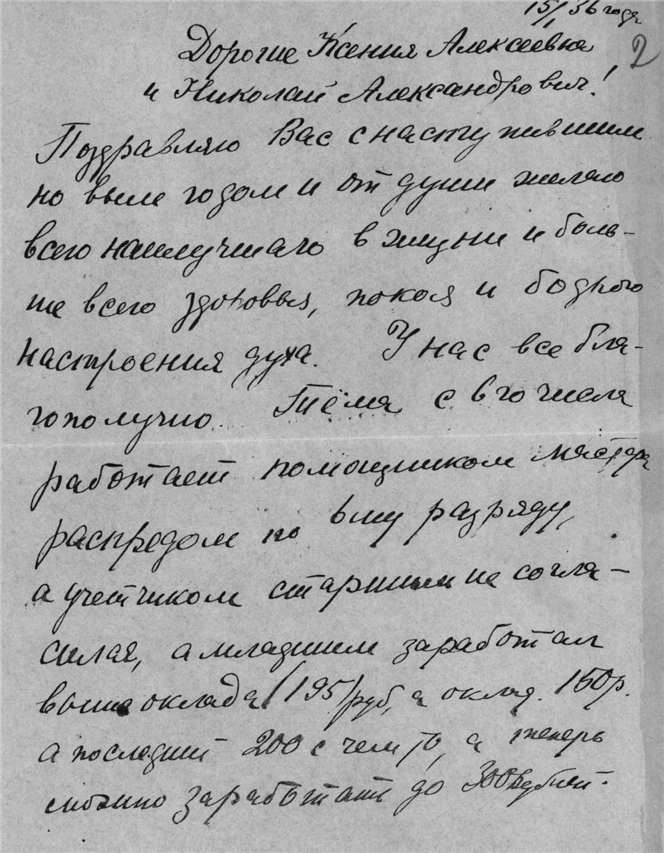 15/I 36 года
2
Дорогие Ксения Алексеевна
и Николай Александрович!
Поздравляю Вас с наступившим
новым годом и от души желаю
всего наилучшаго в жизни и боль-
ше всего здоровья, покоя и бодрого
настроения духа. У нас все бла-
гополучно. Тёма с 8го числа
работает помощником мастера
распредом по 6му разряду,
а учетчиком старшим не согла-
сился, а младшим заработал
выше оклада (195) руб, а оклад. 150р.
а последний 200 с чем то, а теперь
можно заработать до 300 рублей.